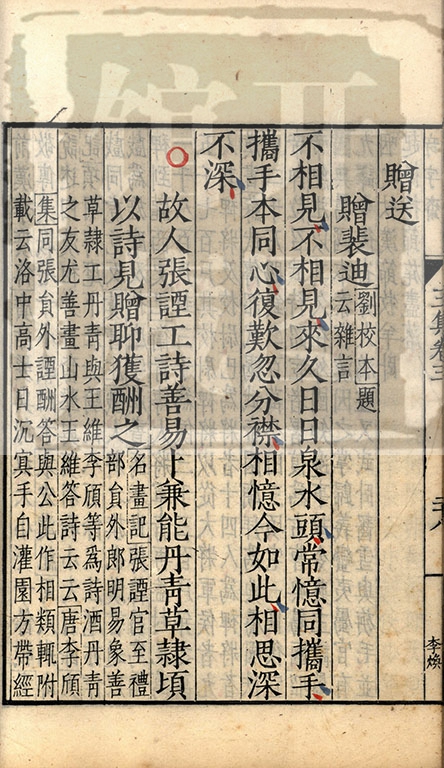 贈送
贈裴迪
劉校本題
云雜言
不相見不相見來久日日泉水頭常憶同攜手
攜手本同心復歎忽分襟相憶今如此相思深
不深
故人張諲工詩善易卜兼能丹青草隸頃
以詩見贈聊獲酬之
名畫記張諲官至禮
部員外郎明易象善
草隸工丹青與王維李頎等爲詩酒丹青
之友尤善畫山水王維答詩云云唐李頎
集同張員外諲酬答與公此作相類輒附
載云洛中高士日沉冥手自灌園方帶經
李煥